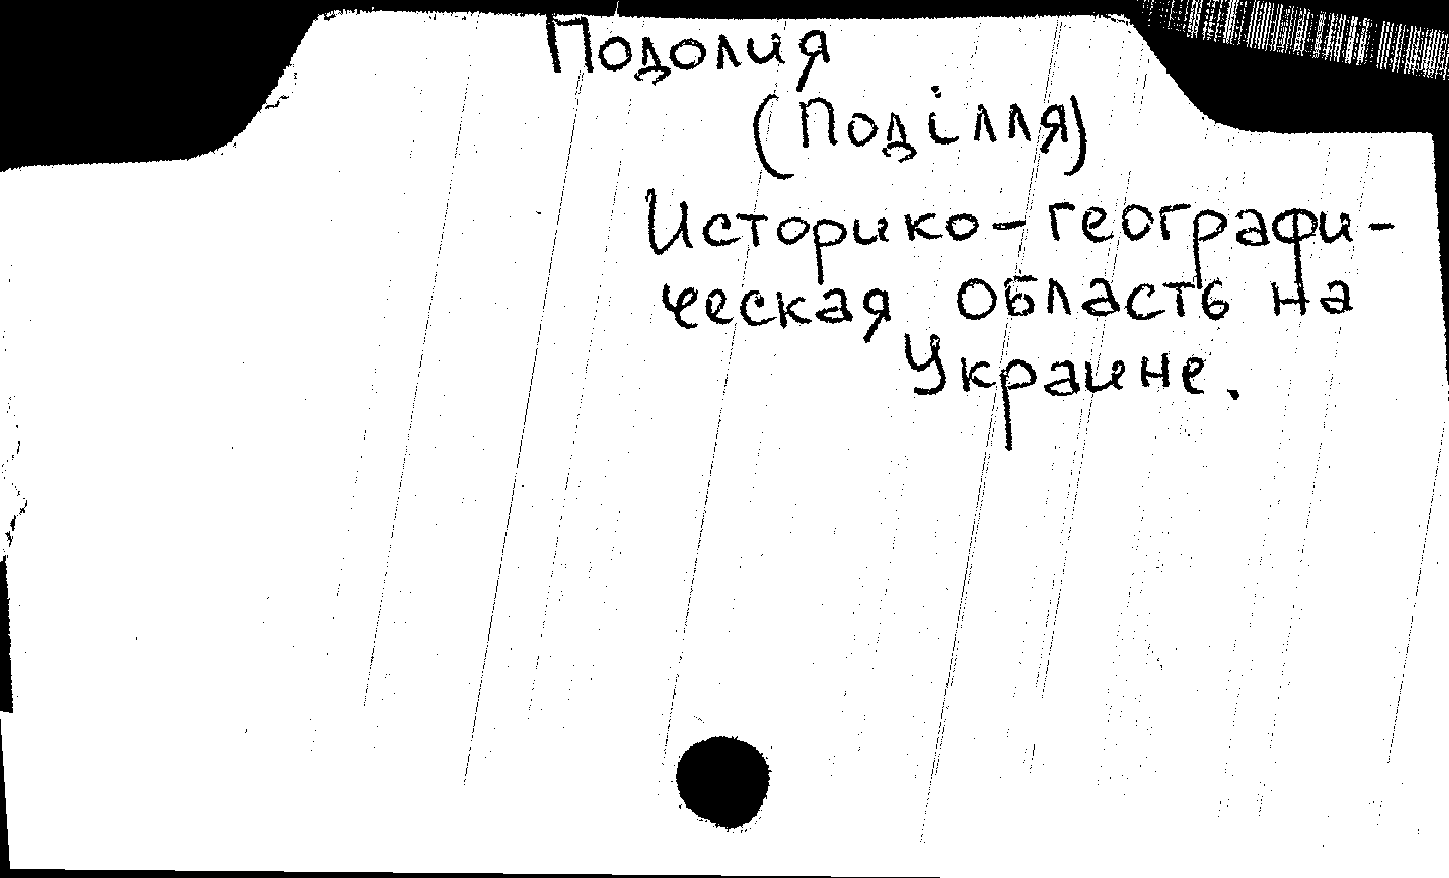 Подолия
(Поділля)
Историко-географи-
ческая область на
Украине.